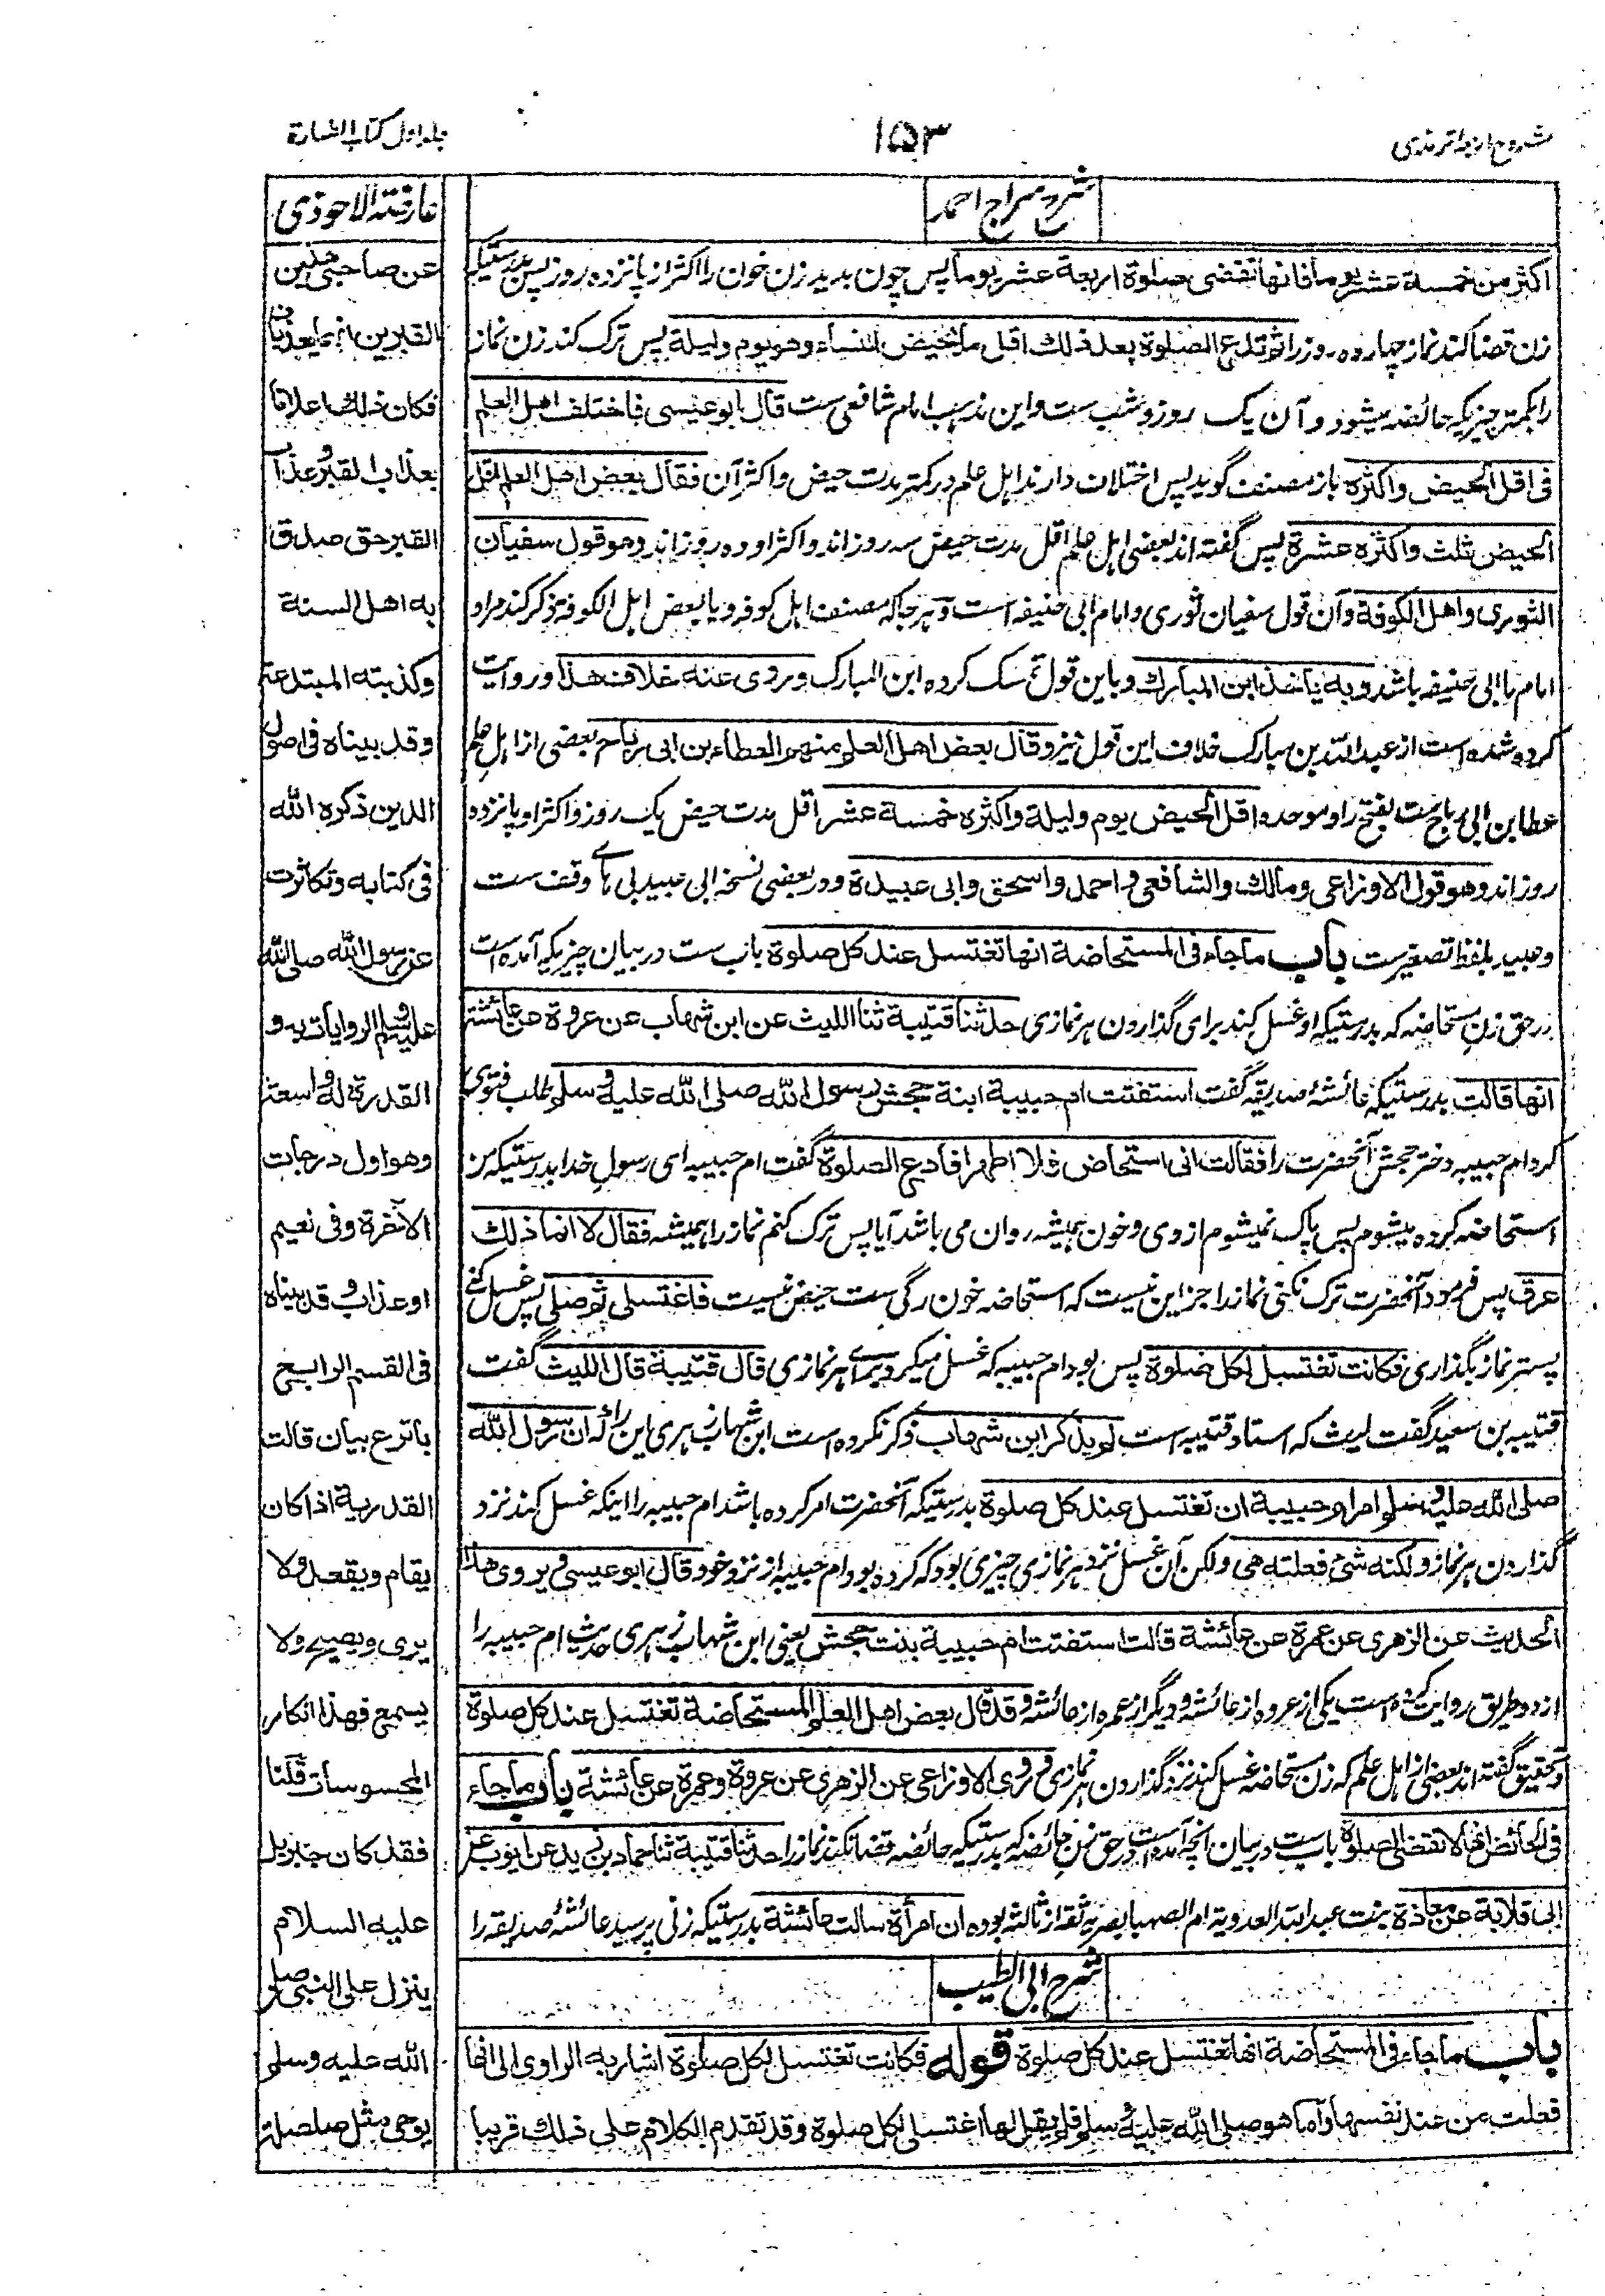 شروح اربعه ترمذی
۱۵۳
جلد اول کتاب الطهارة
شرح سراج احمد
اکثر من خمسة عشر یوما فانها تقضی صلوة اربعة عشر یوما پس چون بدید زن خون را اکثر از پانزده روز پس بدرستیکه
زن قضا کند نماز چهارده روز را ثم تدع الصلوة بعد ذلك اقل ما تحیض النساء وهو یوم ولیلة پس ترک کند زن نماز
را بکمتر چیزیکه حائضه میشود و آن یک روز و شب ست و این مذهب امام شافعی ست قال ابو عیسی فاختلف اهل العلم
فی اقل الحیض واکثره باز مصنف گوید پس اختلاف دارند اهل علم در کمتر مدت حیض و اکثر آن فقال بعض اهل العلم اقل
الحیض ثلث واکثره عشرة پس گفته اند بعضی اهل علم اقل مدت حیض سه روز اند و اکثر او ده روز اند وهو قول سفیان
الثوری واهل الکوفة و آن قول سفیان ثوری و امام ابی حنیفه است و هر جا که مصنف اهل کوفه و یا بعض اهل الکوفه ذکر کند مراد
امام ما ابی حنیفه باشد وبه یاخذ ابن المبارك و باین قول تمسک کرده ابن المبارک وروی عنه خلاف هذا و روایت
کرده شده است از عبد الله بن مبارک خلاف این قول نیز وقال بعض اهل العلم منهم العطاء بن ابی رباح بعضی از اهل علم
عطا بن ابی رباح ست بفتح را و موحده اقل الحیض یوم ولیلة واکثره خمسة عشر اقل مدت حیض یک روز و اکثر او پانزده
روز اند وهو قول الاوزاعی ومالك والشافعی واحمد واسحق وابی عبیدة و در بعضی نسخه ابی عبید بی های وقف ست
و عبید بلفظ تصغیر ست باب ما جاء فی المستحاضة انها تغتسل عند کل صلوة باب ست در بیان چیزیکه آمده است
در حق زن مستحاضه که بدرستیکه او غسل کند برای گذاردن هر نمازی حدثنا قتیبة ثنا اللیث عن ابن شهاب عن عروة عن عائشة
انها قالت بدرستیکه عائشهٔ صدیقه گفت استفتت ام حبیبة ابنة جحش رسول الله صلی الله علیه وسلم طلب فتوی
کرد ام حبیبه دختر جحش آنحضرت را فقالت انی استحاض فلا اطهر افادع الصلوة گفت ام حبیبه ای رسول خدا بدرستیکه من
استحاضه کرده میشوم پس پاک نمیشوم از وی و خون همیشه روان می باشد آیا پس ترک کنم نماز را همیشه فقال لا انما ذلك
عرق پس فرمود آنحضرت ترک نکنی نماز را جز این نیست که استحاضه خون رگی ست حیض نیست فاغتسلی ثم صلی پس غسل کنے
پستر نماز بگذاری فکانت تغتسل لکل صلوة پس بود ام حبیبه که غسل میکرد برای هر نمازی قال قتیبة قال اللیث گفت
قتیبه بن سعید گفت لیث که استاد قتیبه است لم یذکر ابن شهاب ذکر نکرده است ابن شهاب زهری این را ان رسول الله
صلی الله علیه وسلم امر ام حبیبة ان تغتسل عند کل صلوة بدرستیکه آنحضرت امر کرده باشد ام حبیبه را اینکه غسل کند نزد
گذاردن هر نماز ولکنه شیء فعلته هی ولکن آن غسل نزد هر نمازی چیزی بود که کرده بود ام حبیبه از نزد خود قال ابو عیسی ویروی هذا
الحدیث عن الزهری عن عمرة عن عائشة قالت استفتت ام حبیبة بنت جحش یعنی ابن شهاب زهری حدیث ام حبیبه را
از دو طریق روایت کرده است یکی از عروه از عائشه و دیگر از عمره از عائشه وقد قال بعض اهل العلم المستحاضة تغتسل عند کل صلوة
و تحقیق گفته اند بعضی از اهل علم که زن مستحاضه غسل کند نزد گذاردن هر نمازی وروی الاوزاعی عن الزهری عن عروة وعمرة عن عائشة باب ما جاء
فی الحائض انها لا تقضی الصلوة باب ست در بیان آنچه آمده است در حق زن حائضه که بدرستیکه حائضه قضا نکند نماز را حدثنا قتیبة ثنا حماد بن زید عن ایوب عن
ابی قلابة عن معاذة بنت عبد الله العدویة ام الصهبا بصریه ثقه از ثالثه بوده ان امرأة سالت عائشة بدرستیکه زنی پرسید عائشهٔ صدیقه را
شرح ابی الطیب
باب ما جاء فی المستحاضة انها تغتسل عند کل صلوة قوله فکانت تغتسل لکل صلوة اشار به الراوی الی انها
فعلت من عند نفسها واما هو صلی الله علیه وسلم فلم یقل لها اغتسلی لکل صلوة وقد تقدم الکلام علی ذلك قریبا
عارضة الاحوذی
عن صاحبی هذین
القبرین انهما یعذبان
فکان ذلك اعلاما
بعذاب القبر وعذاب
القبر حق صدق
به اهل السنة
وکذبته المبتدعة
وقد بیناه فی اصول
الدین ذکره الله
فی کتابه وتکاثرت
عن رسول الله صلی الله
علیه وسلم الروایات به و
القدرة له واسعة
وهو اول درجات
الآخرة وفی نعیم
او عذاب وقد بیناه
فی القسم الرابع
بابرع بیان قالت
القدریة اذا کان
یقام ویقعد ولا
یری ویصیح ولا
یسمع فهذا انکار
المحسوسات قلنا
فقد کان جبریل
علیه السلام
ینزل علی النبی صلی
الله علیه وسلم
یوحی مثل صلصلة